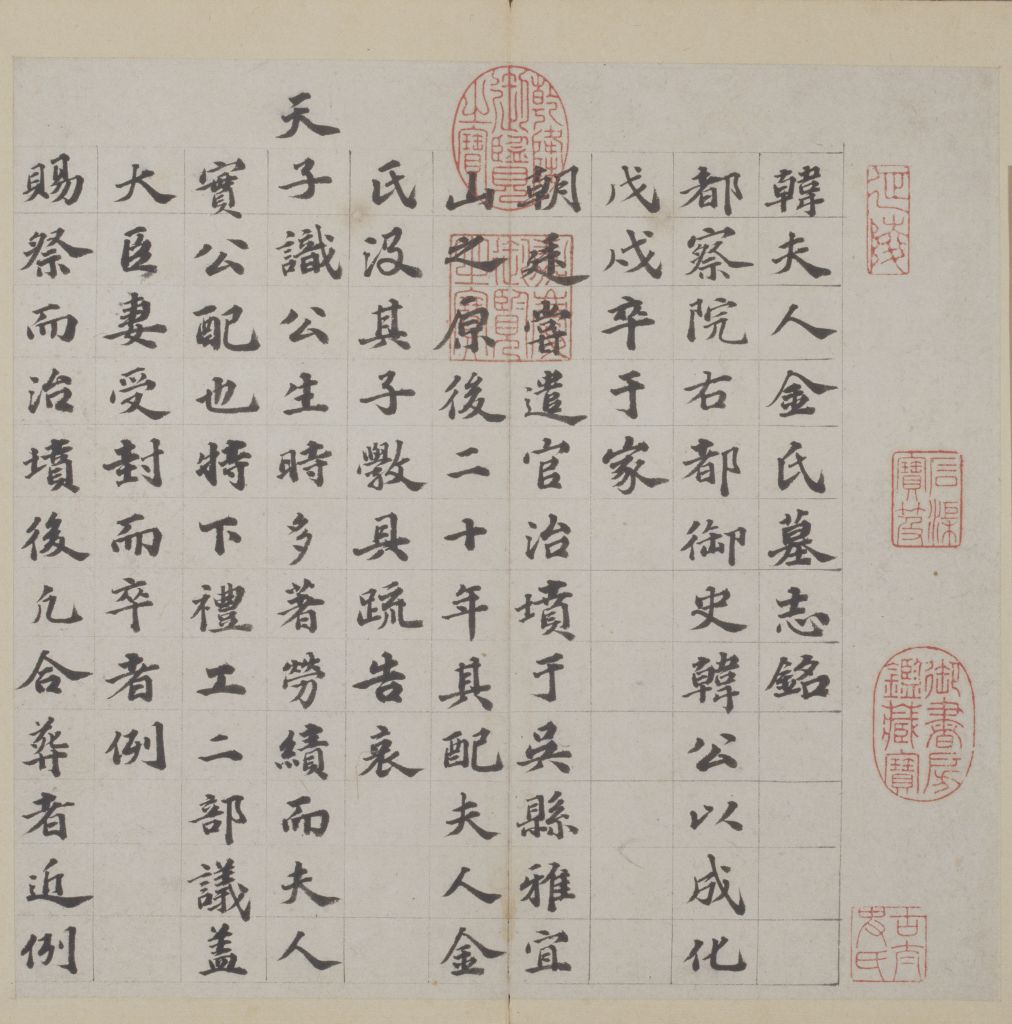 韓夫人金氏墓志銘
都察院右都御史韓公以成化
戊戌卒于家
朝廷嘗遣官治墳于吳縣雅宜
山之原後二十年其配夫人金
氏沒其子斆具疏告哀
天子識公生時多著勞績而夫人
實公配也特下禮工二部議蓋
大臣妻受封而卒者例
賜祭而治墳後凡合葬者近例
乾隆御覽之寶
御書房鑑藏寶
石渠寶笈